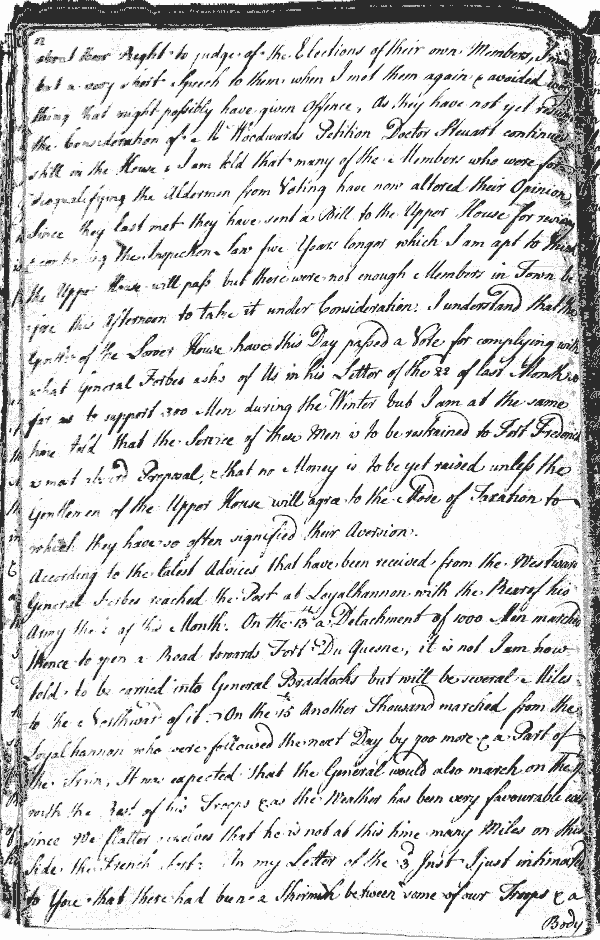 about their Right to judge of the Elections of their own Members, I
but a very short Speech to them when I met them again & avoided
thing that might possibly have given Offence, As they have not yet
the Consideration of Mr Woodwards Petition Doctor Steuart continues
still in the House & I am told that many of the Members who were for
disqualifying the Aldermen from Voting have now altered their Opinion,
Since they last met they have sent a Bill to the Upper House for
the Inspection Law five Years longer which I am apt to think
the Upper House will pass but there were not enough Members in Town be
fore this Afternoon to take it under Consideration; I understand that the
Gentn of the Lower House have this Day passed a Vote for complying with
what General Forbes asks of Us in his Letter of the 22 of last Month so
far as to support 300 Men during the Winter but I am at the same
time told that the Service of these Men is to be restrained to Fort Frederick
a most absurd Proposal, & that no Money is to be yet raised unless the
Gentlemen of the Upper House will agree to the Mode of Taxation to
which they have so often signified their Aversion.
According to the latest Advices that have been received from the Westward
General Forbes reached the Post at Loyalhannon with the Rear of his
Army the of this Month. On the 13th a Detachment of 1000 Men marched
thence to open a Road towards Fort Du Quesne, it is not I am now
told to be carried into General Braddocks but will be several Miles
to the Northward of it. On the 15th Another Thousand marched from the
Loyalhannon who were followed the next Day by 900 more & a Part of
the Train, It was expected that the General would also march on the
with the Rest of his Troops & as the Weather has been very favourable ever
since We flatter ourselves that he is not at this time many Miles on this
Side the French Fort. In my Letter of the 3d Inst I just intimated
to You that there had been a Skirmish between some of our Troops & a
Body